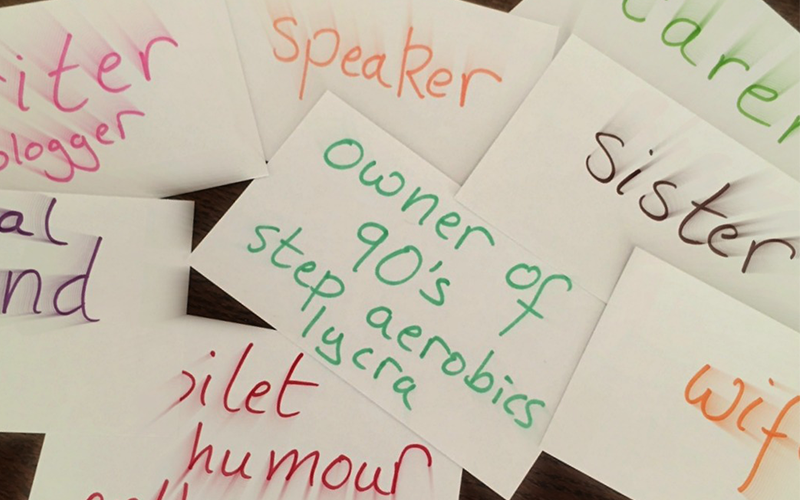 iter
blogger
speaker
carer
sister
owner of
90's
step aerobics
lycra
al
nd
oilet
humour
wif